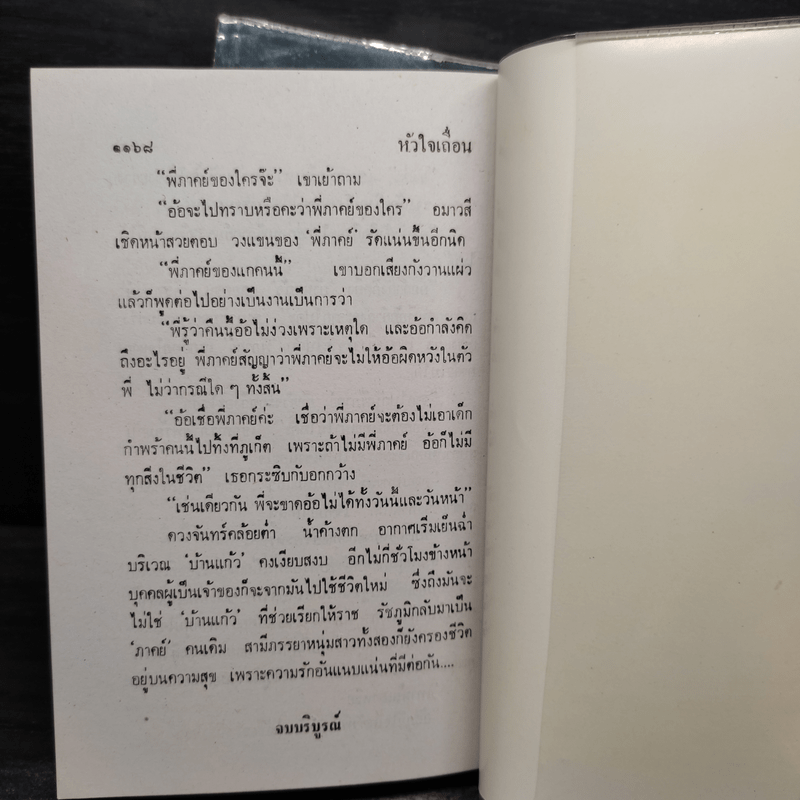 ๑๑๖๘ หัวใจเถื่อน
“พี่ภาคย์ของใครจ๊ะ” เขาเย้าถาม
“อ้อจะไปทราบหรือคะว่าพี่ภาคย์ของใคร” อมาวสี
เชิดหน้าสวยตอบ วงแขนของ ‘พี่ภาคย์’ รัดแน่นขึ้นอีกนิด
“พี่ภาคย์ของแกคนนี้” เขาบอกเสียงกังวานแผ่ว
แล้วก็พูดต่อไปอย่างเป็นงานเป็นการว่า
“พี่รู้ว่าคืนนี้อ้อไม่ง่วงเพราะเหตุใด และอ้อกำลังคิด
ถึงอะไรอยู่ พี่ภาคย์สัญญาว่าพี่ภาคย์จะไม่ให้อ้อผิดหวังในตัว
พี่ ไม่ว่ากรณีใด ๆ ทั้งสิ้น”
“อ้อเชื่อพี่ภาคย์ค่ะ เชื่อว่าพี่ภาคย์จะต้องไม่เอาเด็ก
กำพร้าคนนี้ไปทิ้งที่ภูเก็ต เพราะถ้าไม่มีพี่ภาคย์ อ้อก็ไม่มี
ทุกสิ่งในชีวิต” เธอกระซิบกับอกกว้าง
“เช่นเดียวกัน พี่จะขาดอ้อไม่ได้ทั้งวันนี้และวันหน้า”
ดวงจันทร์คล้อยต่ำ น้ำค้างตก อากาศเริ่มเย็นฉ่ำ
บริเวณ ‘บ้านแก้ว’ คงเงียบสงบ อีกไม่กี่ชั่วโมงข้างหน้า
บุคคลผู้เป็นเจ้าของก็จะจากมันไปใช้ชีวิตใหม่ ซึ่งถึงมันจะ
ไม่ใช่ ‘บ้านแก้ว’ ที่ช่วยเรียกให้ราช รัชภูมิกลับมาเป็น
‘ภาคย์’ คนเดิม สามีภรรยาหนุ่มสาวทั้งสองก็ยังครองชีวิต
อยู่บนความสุข เพราะความรักอันแนบแน่นที่มีต่อกัน....
จบบริบูรณ์